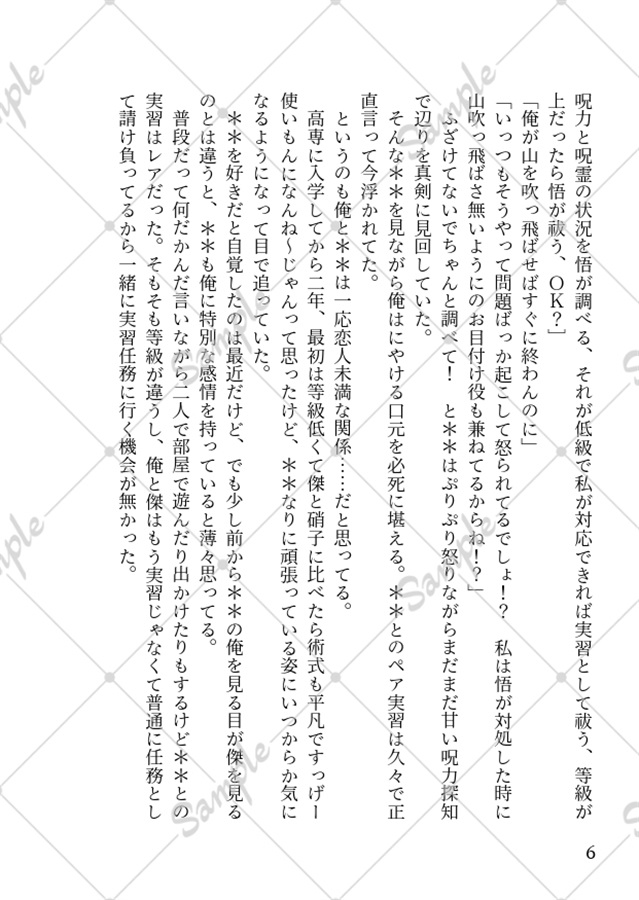 呪力と呪霊の状況を悟が調べる、それが低級で私が対応できれば実習として祓う、等級が
上だったら悟が祓う、OK？］
「俺が山を吹っ飛ばせばすぐに終わんのに」
「いっつもそうやって問題ばっか起こして怒られてるでしょ！？　私は悟が対処した時に
山吹っ飛ばさ無いようにのお目付け役も兼ねてるからね！？」
　ふざけてないでちゃんと調べて！　と＊＊はぷりぷり怒りながらまだまだ甘い呪力探知
で辺りを真剣に見回していた。
　そんな＊＊を見ながら俺はにやける口元を必死に堪える。＊＊とのペア実習は久々で正
直言って今浮かれてた。
　というのも俺と＊＊は一応恋人未満な関係……だと思ってる。
　高専に入学してから二年、最初は等級低くて傑と硝子に比べたら術式も平凡ですっげー
使いもんになんね～じゃんって思ったけど、＊＊なりに頑張っている姿にいつからか気に
なるようになって目で追っていた。
　＊＊を好きだと自覚したのは最近だけど、でも少し前から＊＊の俺を見る目が傑を見る
のとは違うと、＊＊も俺に特別な感情を持っていると薄々思ってる。
　普段だって何だかんだ言いながら二人で部屋で遊んだり出かけたりもするけど＊＊との
実習はレアだった。そもそも等級が違うし、俺と傑はもう実習じゃなくて普通に任務とし
て請け負ってるから一緒に実習任務に行く機会が無かった。
6
Sample
Sample
Sample
Sample
Sample
Sample